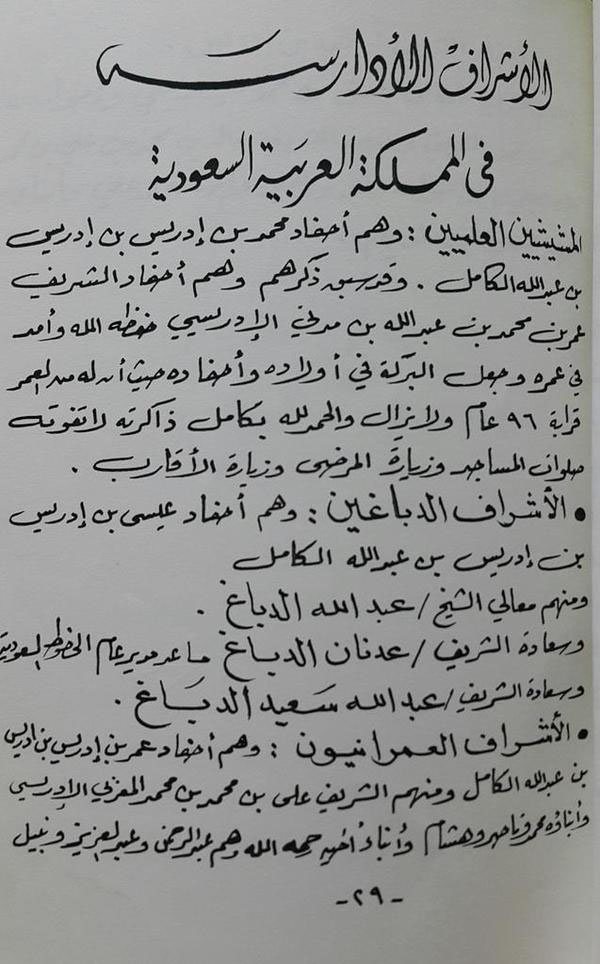 الأشراف الأدارسة
في المملكة العربية السعودية
المشيشيين العلميين : وهم أحفاد محمد بن إدريس بن إدريس
بن عبدالله الكامل . وقد سبق ذكرهم وهم أحفاد الشريف
عمر بن محمد بن عبدالله بن مدني الإدريسي حفظه الله وأمد
في عمره وجعل البركة في أولاده وأحفاده حيث أن له من العمر
قرابة ٩٦ عام ولا يزال والحمد لله بكامل ذاكرته لا تفوته
صلوات المساجد وزيارة المرضى وزيارة الأقارب .
• الأشراف الدباغين : وهم أحفاد عيسى بن إدريس
بن إدريس بن عبد الله الكامل
ومنهم معالي الشيخ / عبد الله الدباغ .
وسعادة الشريف / عدنان الدباغ مساعد مدير عام الخطوط السعودية
وسعادة الشريف / عبد الله سعيد الدباغ .
• الأشراف العمرانيون : وهم أحفاد عمر بن إدريس بن ادريس
بن عبدالله الكامل ومنهم الشريف على بن محمد بن محمد المغربي الإدريسي
وأبناؤه محمد وناصر وهشام وأبناء أخيه رحمه الله وهم عبد الرحمن وعبد العزيز ونبيل
- ٢٩ -